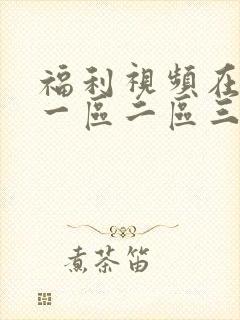 福利視頻在
一區二區三
煮茶笛